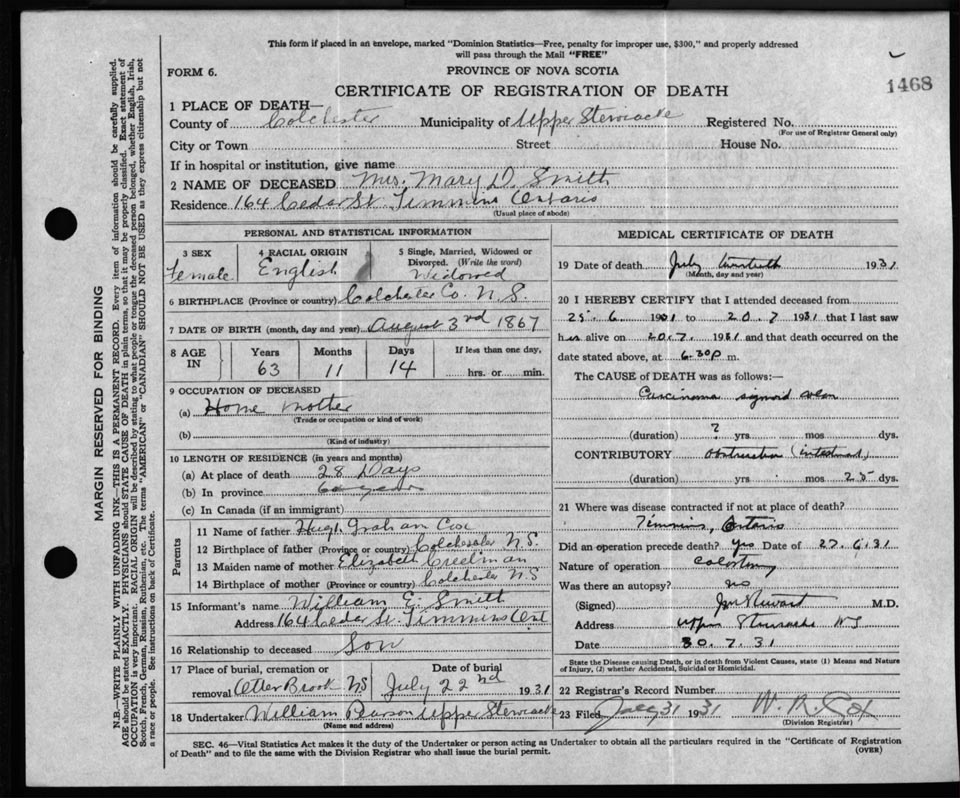 This form if placed in an envelope, marked "Dominion Statistics—Free, penalty for improper use, $300," and properly addressed
will pass through the Mail "FREE"
FORM 6.
PROVINCE OF NOVA SCOTIA
CERTIFICATE OF REGISTRATION OF DEATH
1468
1 PLACE OF DEATH—
County of Colchester Municipality of Upper Stewiacke Registered No.
(For use of Registrar General only)
City or Town Street House No.
If in hospital or institution, give name
2 NAME OF DECEASED Mrs. Mary D. Smith
Residence 164 Cedar St. Timmins Ontario
(Usual place of abode)
PERSONAL AND STATISTICAL INFORMATION
3 SEX Female
4 RACIAL ORIGIN English
5 Single, Married, Widowed or
Divorced. (Write the word)
Widowed
6 BIRTHPLACE (Province or country) Colchester Co. N.S.
7 DATE OF BIRTH (month, day and year) August 3rd 1867
8 AGE IN
Years Months Days If less than one day,
63 11 14 hrs. or min.
9 OCCUPATION OF DECEASED
(a) Home mother
(Trade or occupation or kind of work)
(b)
(Kind of industry)
10 LENGTH OF RESIDENCE (in years and months)
(a) At place of death 28 Days
(b) In province
(c) In Canada (if an immigrant)
Parents
11 Name of father Hugh Graham Cox
12 Birthplace of father (Province or country) Colchester N.S.
13 Maiden name of mother Elizabeth Creelman
14 Birthplace of mother (Province or country) Colchester N.S
15 Informant's name William E. Smith
Address 164 Cedar St. Timmins Ont
16 Relationship to deceased Son
17 Place of burial, cremation or Date of burial
removal Otter Brook NS July 22nd 1931
18 Undertaker William Pearson Upper Stewiacke
(Name and address)
MEDICAL CERTIFICATE OF DEATH
19 Date of death July twentieth 1931
(Month, day and year)
20 I HEREBY CERTIFY that I attended deceased from
25.6 1931 to 20.7 1931 that I last saw
her alive on 20.7. 1931 and that death occurred on the
date stated above, at 6.30 P m.
The CAUSE of DEATH was as follows:—
Carcinoma sigmoid colon
(duration) ? yrs. mos. dys.
CONTRIBUTORY obstruction (intestinal)
(duration) yrs. mos. 25 dys.
21 Where was disease contracted if not at place of death?
Timmins, Ontario
Did an operation precede death? Yes Date of 27.6.31
Nature of operation Colostomy
Was there an autopsy? no
(Signed) Stewart M.D.
Address Upper Stewiacke NS
Date 30.7.31
State the Disease causing Death, or in death from Violent Causes, state (1) Means and Nature
of Injury, (2) whether Accidental, Suicidal or Homicidal.
22 Registrar's Record Number
23 Filed July 31 1931 W. R. Cox
(Division Registrar)
SEC. 46—Vital Statistics Act makes it the duty of the Undertaker or person acting as Undertaker to obtain all the particulars required in the "Certificate of Registration
of Death" and to file the same with the Division Registrar who shall issue the burial permit.
(OVER)
MARGIN RESERVED FOR BINDING
N.B.—WRITE PLAINLY WITH UNFADING INK—THIS IS A PERMANENT RECORD. Every item of information should be carefully supplied.
AGE should be stated EXACTLY. PHYSICIANS should STATE CAUSE OF DEATH in plain terms, so that it may be properly classified. Exact statement of
OCCUPATION is very important. RACIAL ORIGIN will be described by stating to what people or tongue the deceased person belonged, whether English, Irish,
Scotch, French, German, Russian, Ruthenian, etc. The terms "AMERICAN" or "CANADIAN" SHOULD NOT BE USED as they express citizenship but not
a race or people. See instructions on back of Certificate.